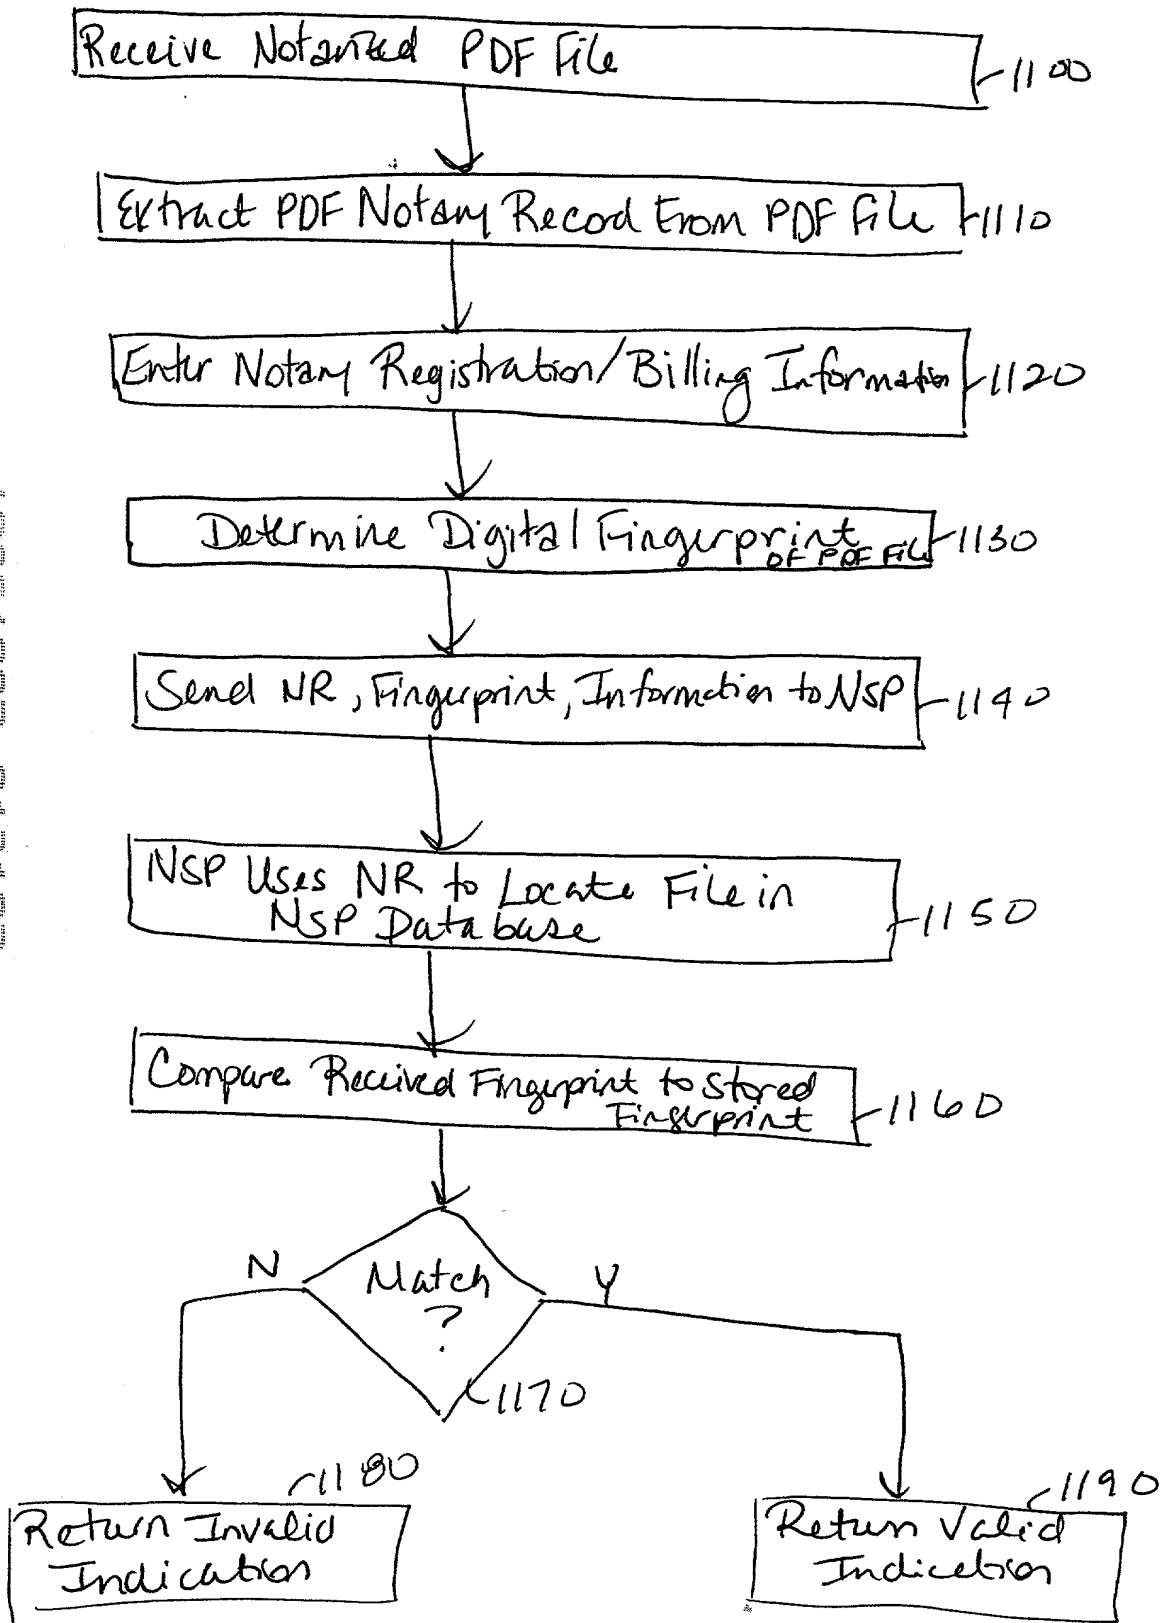 Receive Notarized PDF File
1100
Extract PDF Notary Record From PDF File
1110
Enter Notary Registration/Billing Information
1120
Determine Digital Fingerprint
OF PDF File
1130
Send NR, Fingerprint, Information to NSP
1140
NSP Uses NR to Locate File in
NSP Database
1150
Compare Received Fingerprint to Stored
Fingerprint
1160
Match
?
N
Y
1170
1180
Return Invalid
Indication
1190
Return Valid
Indication